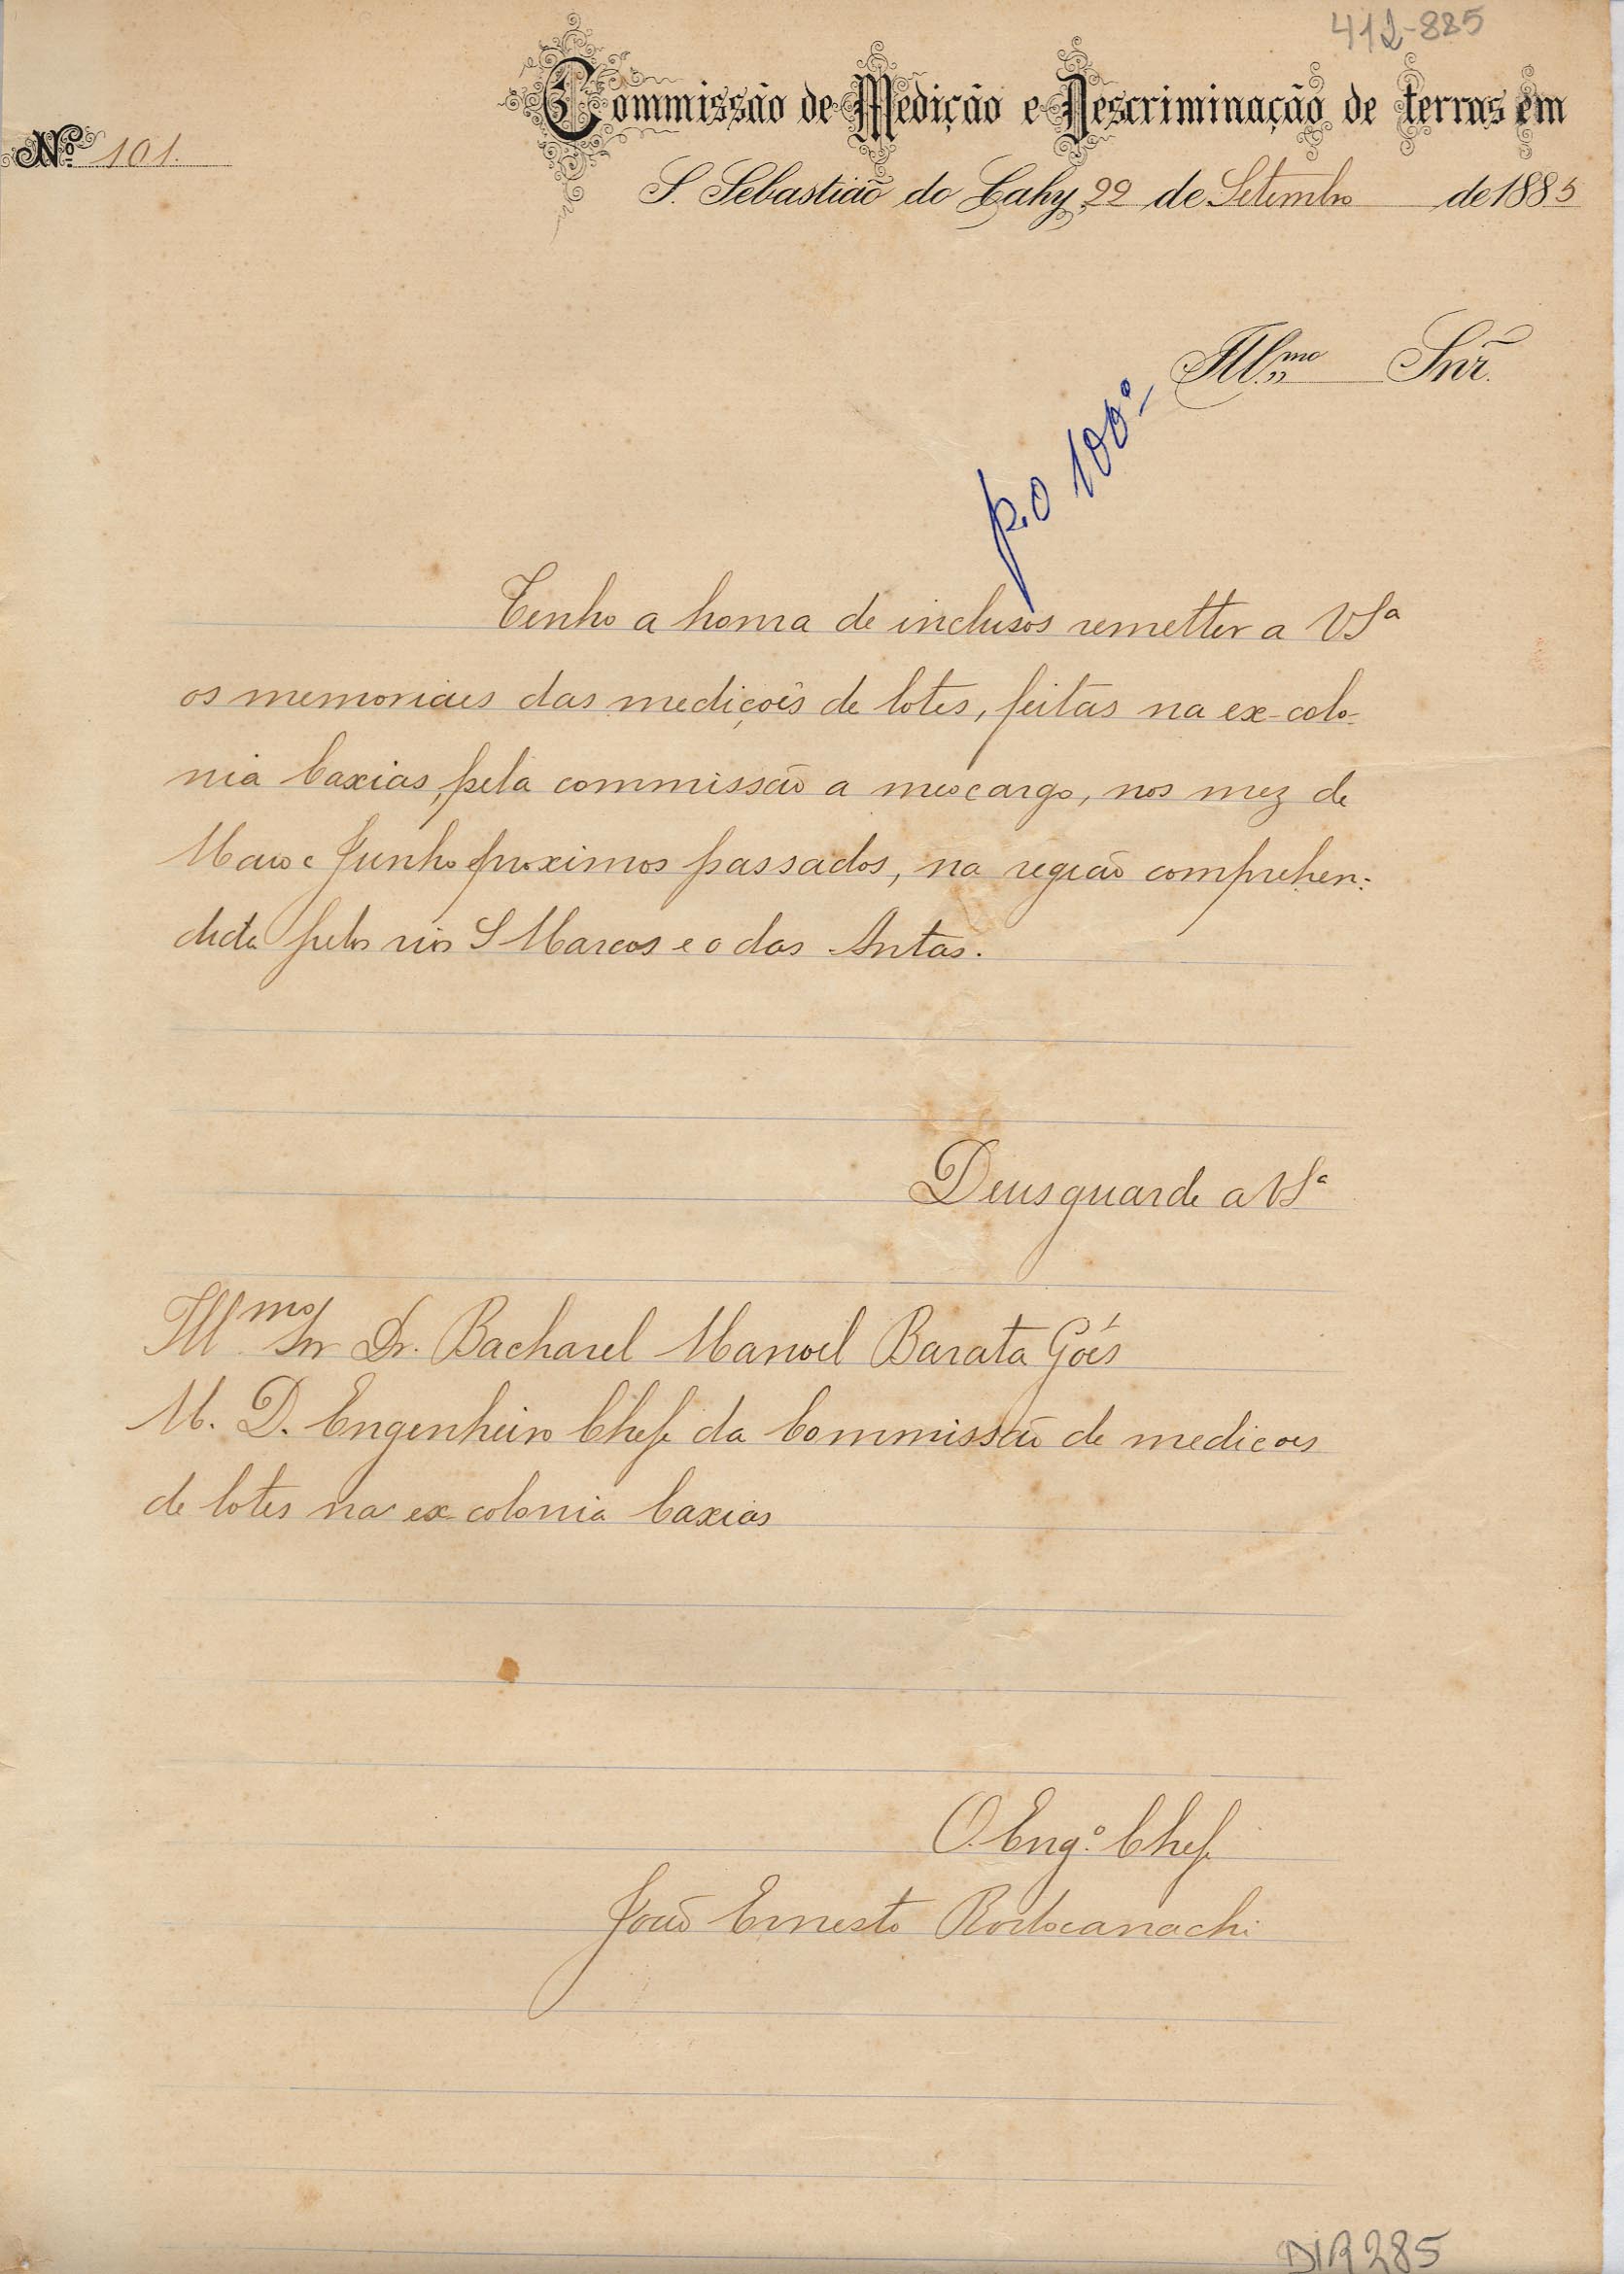 412-885
Commissão de Medição e Descriminação de terras em
Nº 101.
S. Sebastião do Cahy, 22 de Setembro de 1885
Illmo Snr.
p.o 100º
Tenho a honra de inclusos remetter a VSª
os memoriaes das medições de lotes, feitas na ex-colo-
nia Caxias, pela commissão a meo cargo, nos mez de
Maio e Junho proximos passados, na região comprehen-
dida pelos rios S Marcos e o das Antas.
Deus guarde a VSª
Illmo Snr Dr. Bacharel Manoel Barata Góes
M. D. Engenheiro Chefe da Commissão de medicoes
de lotes na ex-colonia Caxias
O. Engº. Chefe
João Ernesto Rodocanachi
DIR 285